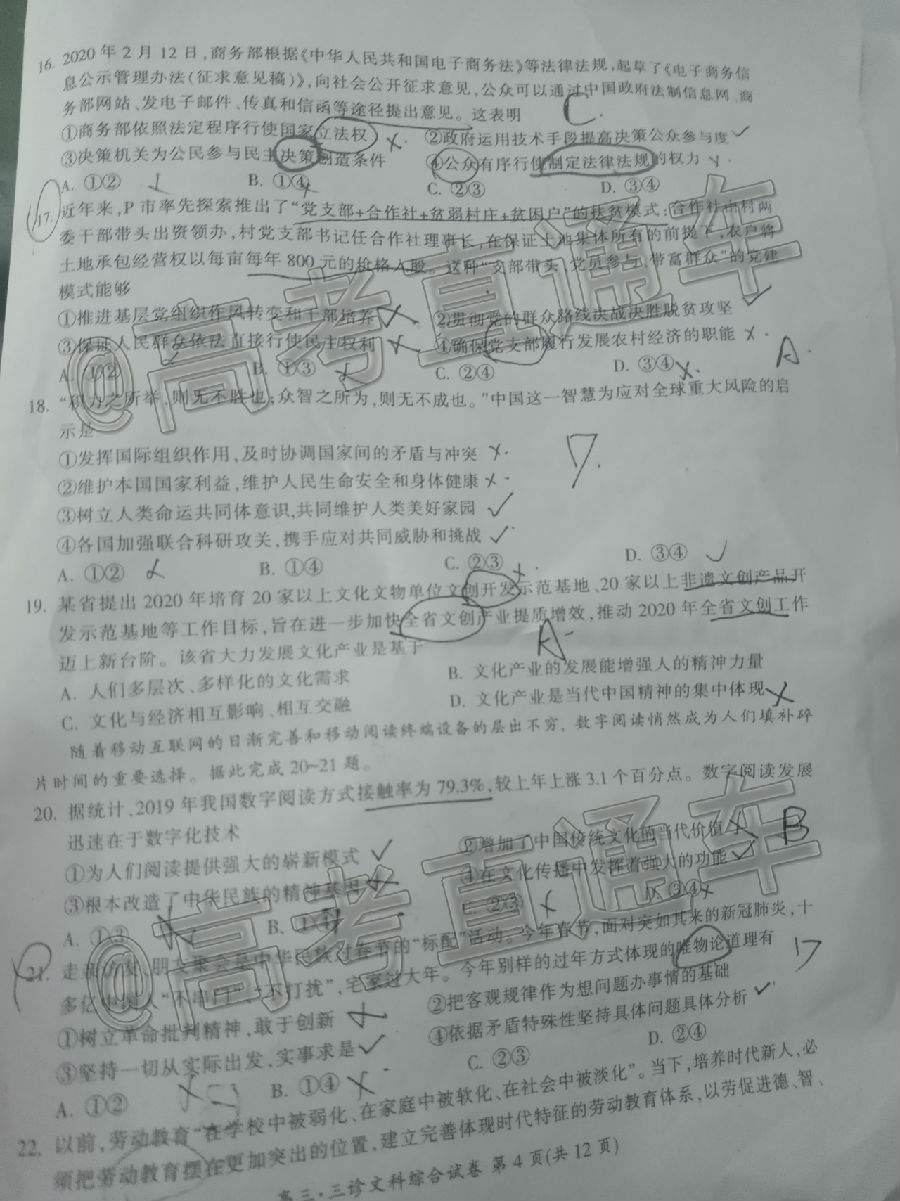 16. 2020 年 2 月 12 日,商务部根据《中华人民共和国电子商务法》等法律法规,起草了《电子商务信
息公示管理办法(征求意见稿)》,向社会公开征求意见,公众可以通过中国政府法制信息网、商
务部网站、发电子邮件、传真和信函等途径提出意见。这表明 C.
①商务部依照法定程序行使国家立法权 ②政府运用技术手段提高决策公众参与度
③决策机关为公民参与民主决策创造条件 ④公众有序行使制定法律法规的权力
A. ①② B. ①④ C. ②③ D. ③④
17. 近年来,P 市率先探索推出了“党支部+合作社+贫弱村庄+贫困户”的扶贫模式:合作社由村两
委干部带头出资领办,村党支部书记任合作社理事长,在保证土地集体所有的前提下,农户将
土地承包经营权以每亩每年 800 元的价格入股。这种“支部带头、党员参与、带富群众”的党建
模式能够
①推进基层党组织作风转变和干部培养 ②贯彻党的群众路线决战决胜脱贫攻坚
③保证人民群众依法直接行使民主权利 ④确保党支部履行发展农村经济的职能
A. ①② B. ①③ C. ②④ D. ③④ A.
18. “积力之所举,则无不胜也;众智之所为,则无不成也。”中国这一智慧为应对全球重大风险的启
示是
①发挥国际组织作用,及时协调国家间的矛盾与冲突
②维护本国国家利益,维护人民生命安全和身体健康
③树立人类命运共同体意识,共同维护人类美好家园
④各国加强联合科研攻关,携手应对共同威胁和挑战
A. ①② B. ①④ C. ②③ D. ③④
19. 某省提出 2020 年培育 20 家以上文化文物单位文创开发示范基地、20 家以上非遗文创产品开
发示范基地等工作目标,旨在进一步加快全省文创产业提质增效,推动 2020 年全省文创工作
迈上新台阶。该省大力发展文化产业是基于 A.
A. 人们多层次、多样化的文化需求 B. 文化产业的发展能增强人的精神力量
C. 文化与经济相互影响、相互交融 D. 文化产业是当代中国精神的集中体现
随着移动互联网的日渐完善和移动阅读终端设备的层出不穷,数字阅读悄然成为人们填补碎
片时间的重要选择。据此完成 20~21 题。
20. 据统计,2019 年我国数字阅读方式接触率为 79.3%,较上年上涨 3.1 个百分点。数字阅读发展
迅速在于数字化技术
①为人们阅读提供强大的崭新模式 ②增加了中国传统文化的当代价值 B
③根本改造了中华民族的精神基因 ④在文化传播中发挥着强大的功能
A. ①③ B. ①④ C. ②③ D. ③④
21. 走亲访友、朋友聚会是中华民族对春节的“标配”活动。今年春节,面对突如其来的新冠肺炎,十
多亿中国人“不串门”“不打扰”,宅家过大年。今年别样的过年方式体现的唯物论道理有
①树立革命批判精神,敢于创新 ②把客观规律作为想问题办事情的基础
③坚持一切从实际出发、实事求是 ④依据矛盾特殊性坚持具体问题具体分析
A. ①② B. ①④ C. ②③ D. ②④
22. 以前,劳动教育“在学校中被弱化、在家庭中被软化、在社会中被淡化”。当下,培养时代新人,必
须把劳动教育摆在更加突出的位置,建立完善体现时代特征的劳动教育体系,以劳促进德、智、
高三·三诊文科综合试卷 第 4 页(共 12 页)
@高考直通车
@高考直通车